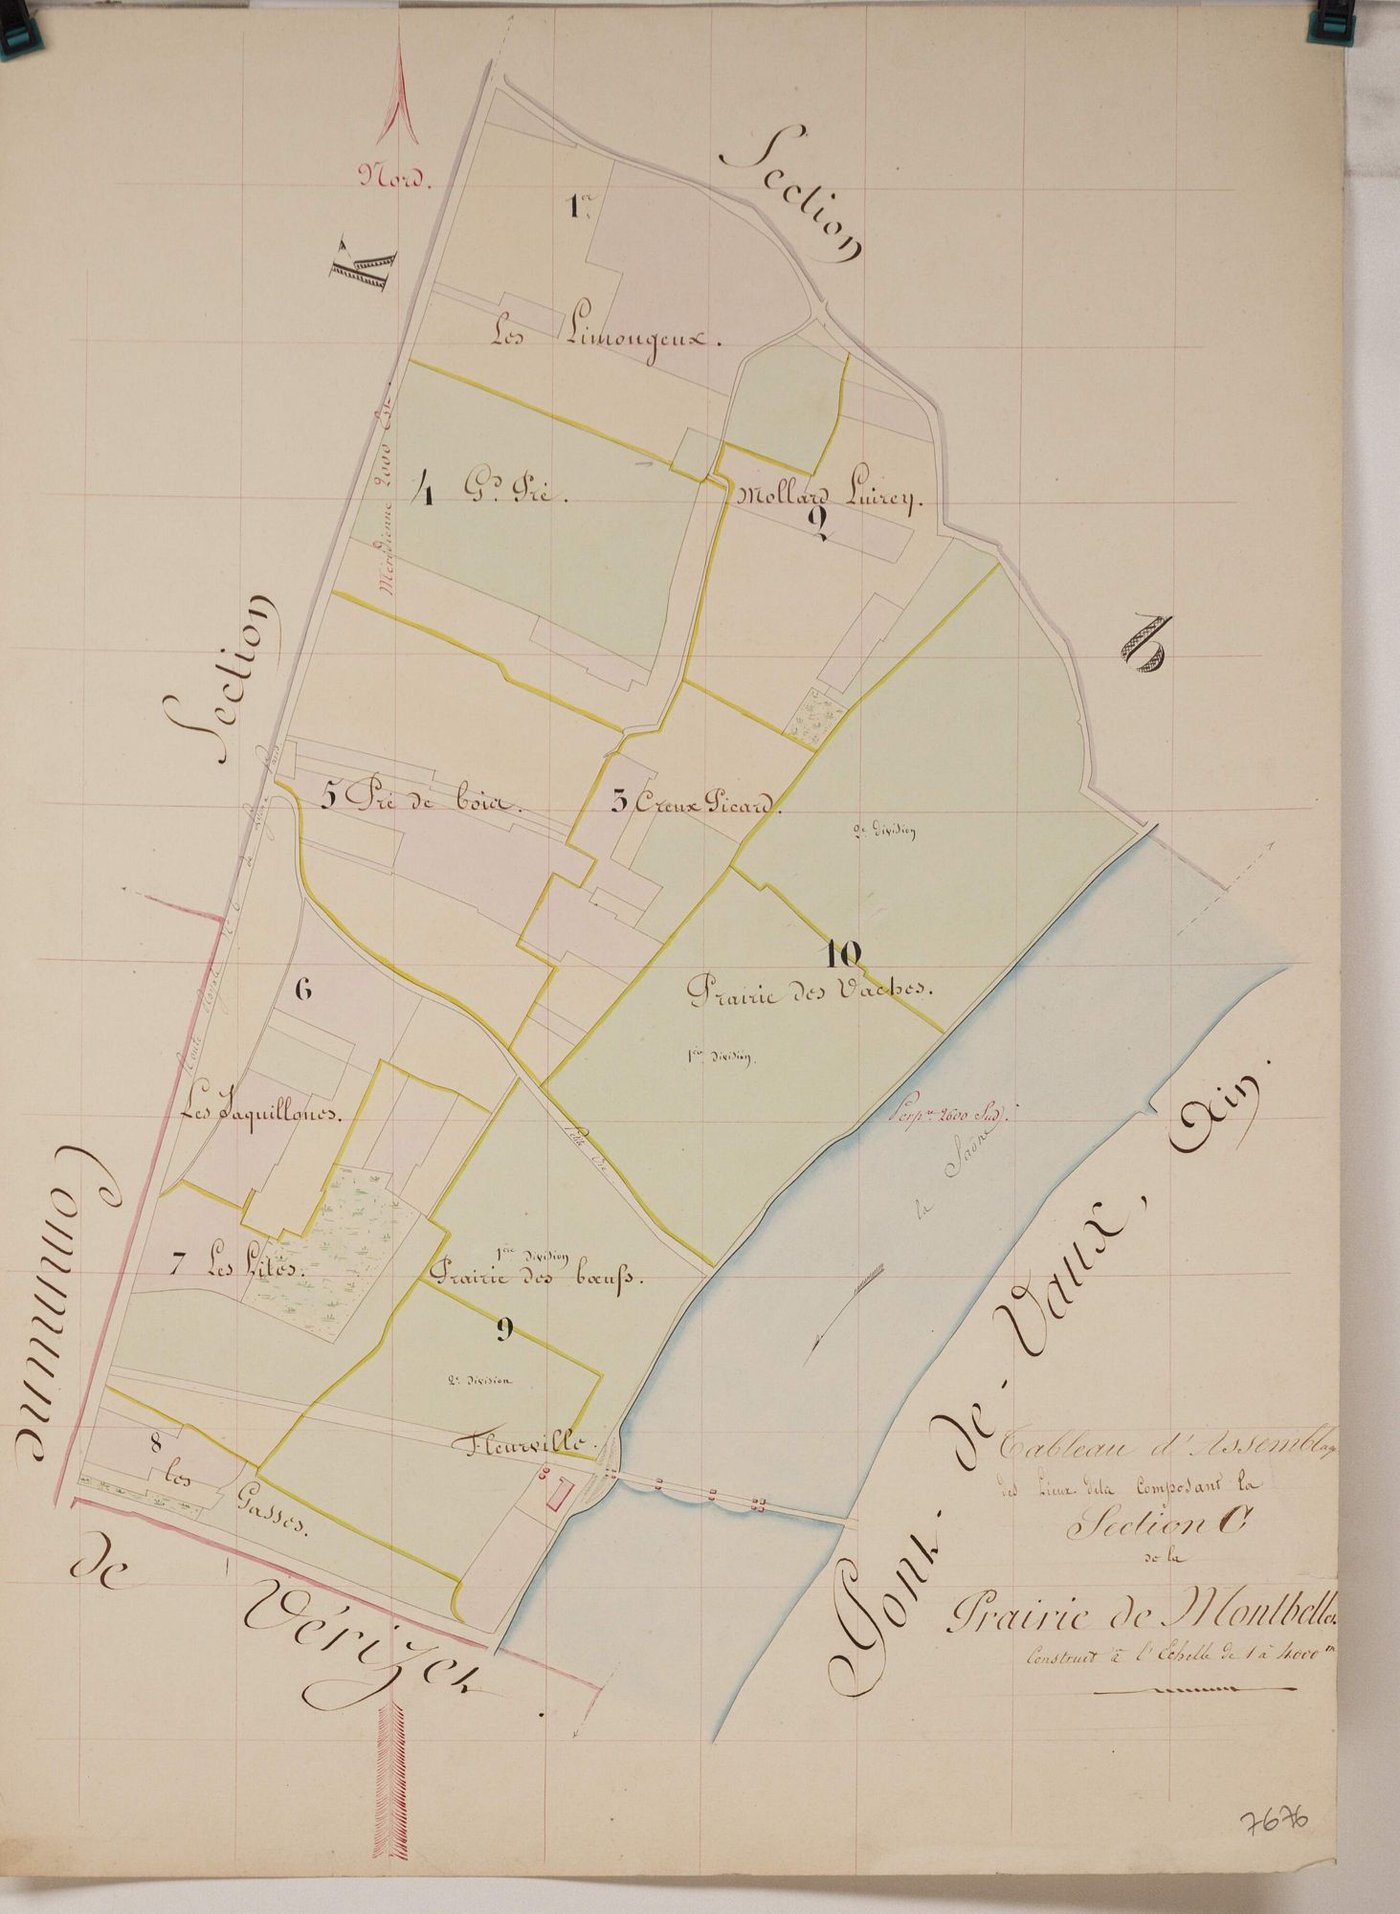 Nord.
K
Section
Section
b
1er
Les Limongeux.
Méridienne 2000 Est.
4 Gd. Pré.
Mollard Luirey.
2
5 Pré de bois.
3 Creux Picard.
2e. Division
10
Prairie des Vaches.
1ère Division.
6
Les Jaquillones.
Route Royale No. 6 de
Perpre 2600 Sud.
la Saône
7 Les Lites.
1ère Division
Prairie des bœufs.
9
2e. Division
Fleurville.
8
les
Gasses.
Commune
de Vérizet.
Pont-de-Vaux, Ain.
Tableau d'Assemblage
des Lieux dits composant la
Section C
de la
Prairie de Montbellet
Construit à l'Echelle de 1 à 4000m
7676